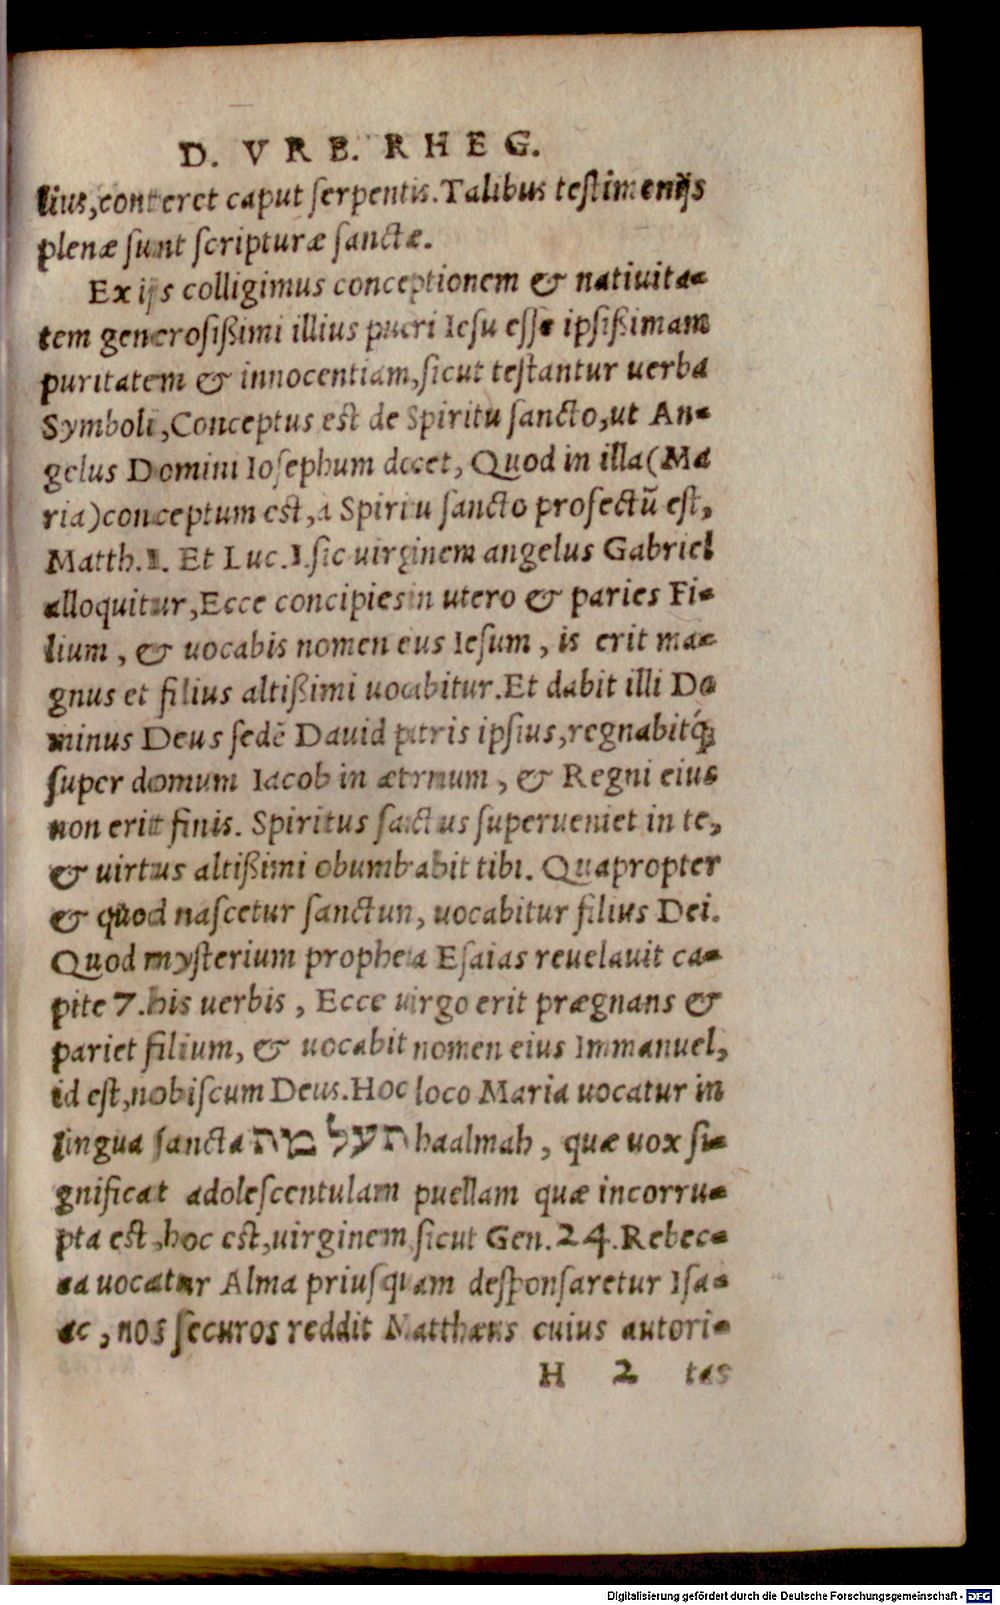 D. VRB. RHEG.
lius, conteret caput serpentis. Talibus testimenijs
plenæ sunt scripturæ sanctæ.
Ex ijs colligimus conceptionem & natiuita-
tem generosißimi illius pueri Iesu esse ipsißimam
puritatem & innocentiam, sicut testantur uerba
Symboli, Conceptus est de Spiritu sancto, ut An-
gelus Domini Iosephum docet, Quod in illa (Ma
ria) conceptum est, a Spiritu sancto profectũ est,
Matth. 1. Et Luc. 1. sic uirginem angelus Gabriel
alloquitur, Ecce concipies in utero & paries Fi-
lium, & uocabis nomen eius Iesum, is erit ma-
gnus et filius altißimi uocabitur. Et dabit illi Do
minus Deus sedẽ Dauid patris ipsius, regnabitq́;
super domum Iacob in æternum, & Regni eius
non erit finis. Spiritus sanctus superueniet in te,
& uirtus altißimi obumbrabit tibi. Quapropter
& quod nascetur sanctum, uocabitur filius Dei.
Quod mysterium propheta Esaias reuelauit ca-
pite 7. his uerbis, Ecce uirgo erit prægnans &
pariet filium, & uocabit nomen eius Immanuel,
id est, nobiscum Deus. Hoc loco Maria uocatur in
lingua sancta העל מה haalmah, quæ uox si-
gnificat adolescentulam puellam quæ incorru-
pta est, hoc est, uirginem sicut Gen. 24. Rebec-
ca uocatur Alma priusquam desponsaretur Isa-
ac, nos securos reddit Matthæus cuius autori-
H 2 tas
Digitalisierung gefördert durch die Deutsche Forschungsgemeinschaft - DFG